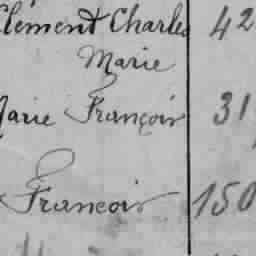 Clément Charles 42
Marie
Marie François 31
François 150